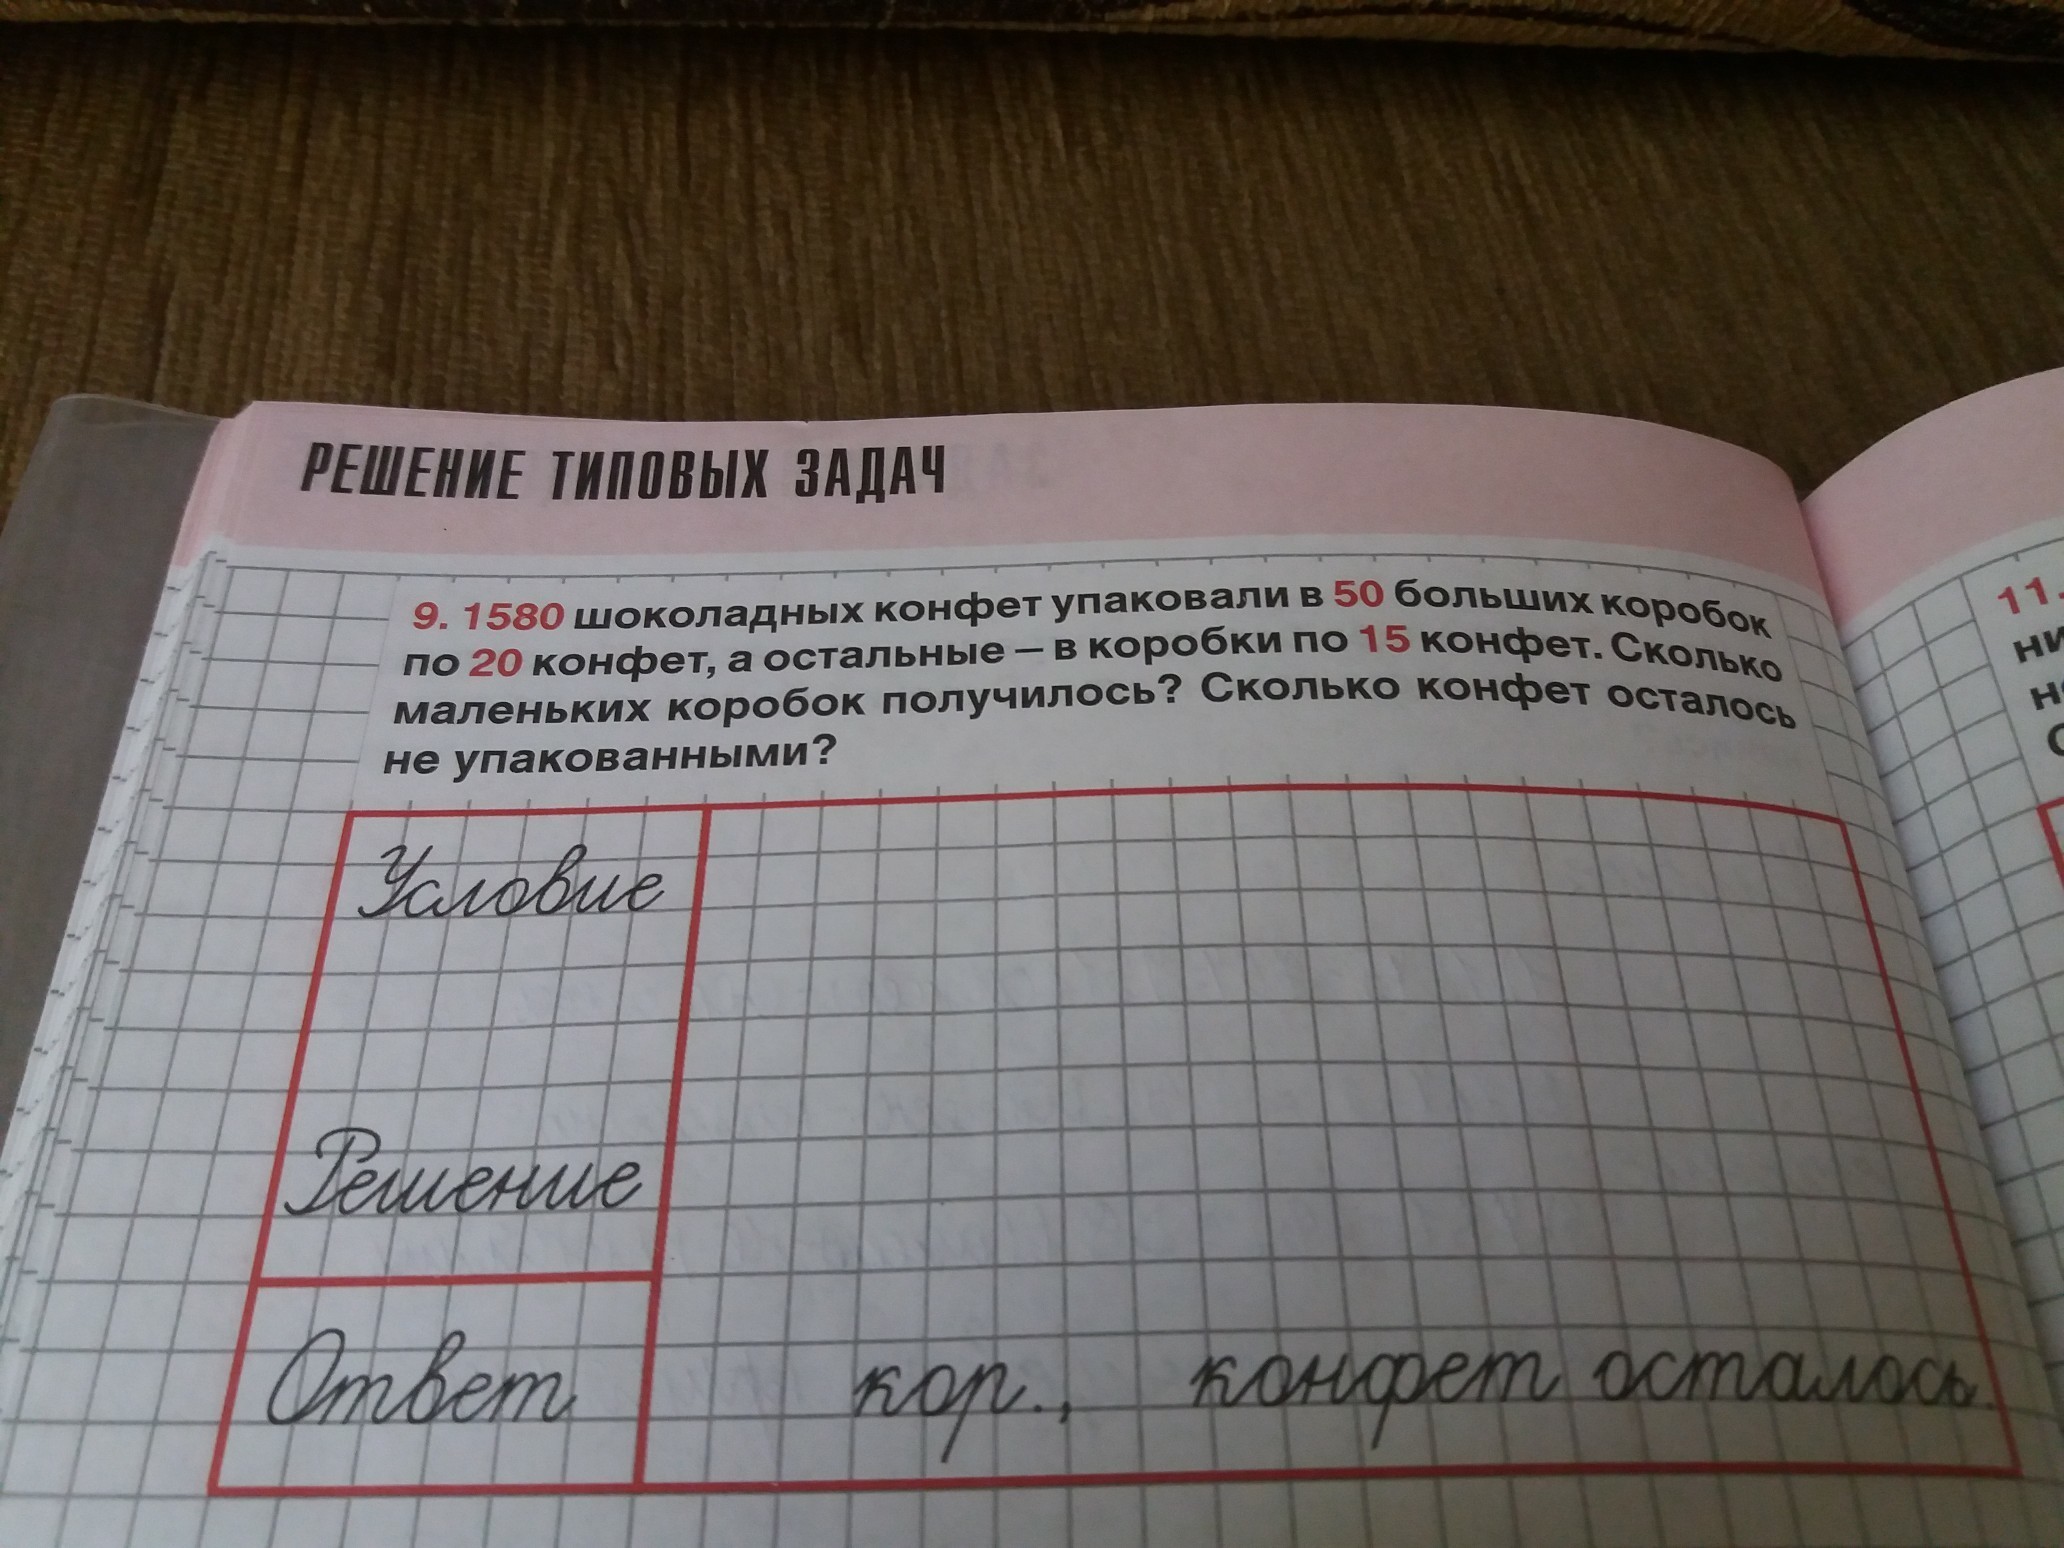 РЕШЕНИЕ ТИПОВЫХ ЗАДАЧ
9. 1580 шоколадных конфет упаковали в 50 больших коробок
по 20 конфет, а остальные – в коробки по 15 конфет. Сколько
маленьких коробок получилось? Сколько конфет осталось
не упакованными?
Условие
Решение
Ответ кор., конфет осталось.
11.
ни